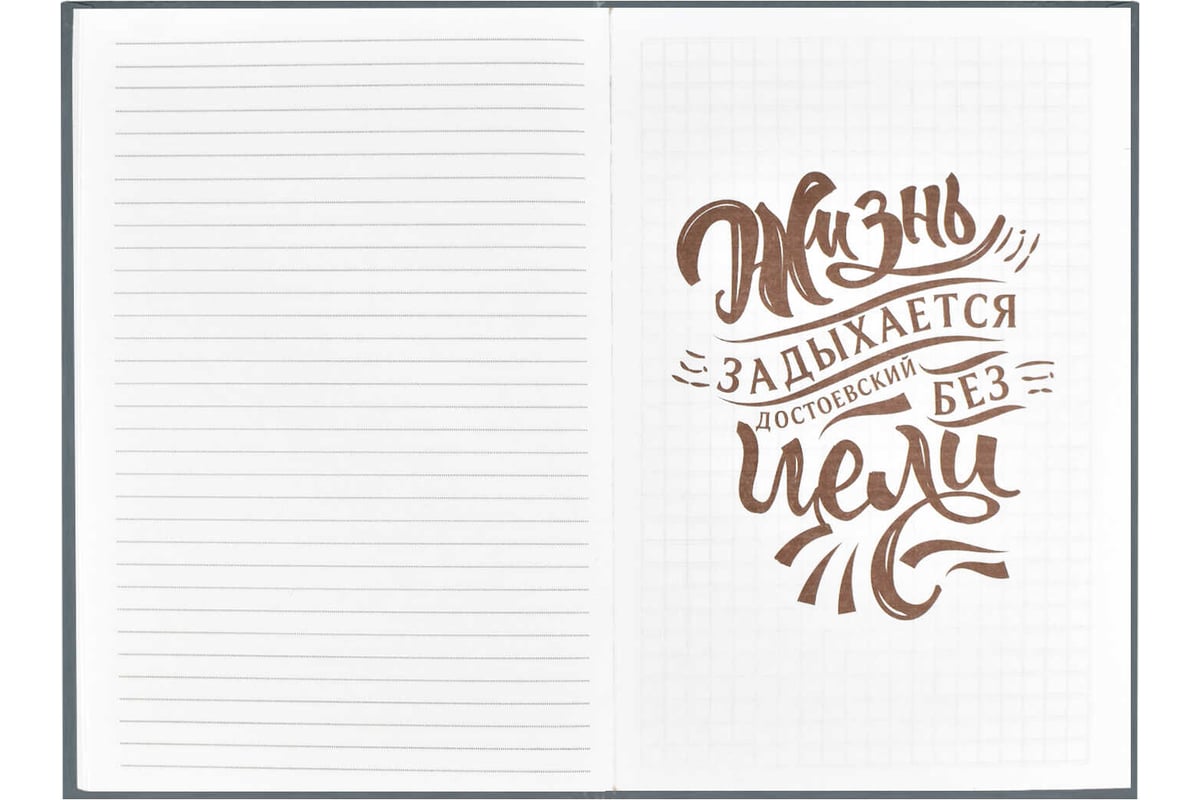 Жизнь
ЗАДЫХАЕТСЯ
БЕЗ
ДОСТОЕВСКИЙ
цели